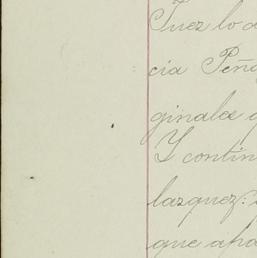 Juez lo a
cia Peñ
ginales q
Y contin
lazquez:
que apa